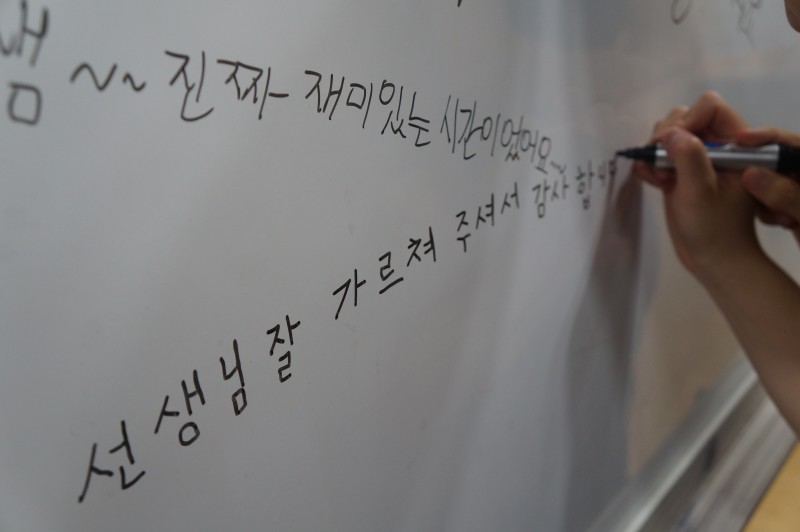 쌤~~ 진짜- 재미있는 시간이었어요~
선생님 잘 가르쳐 주셔서 감사합니다